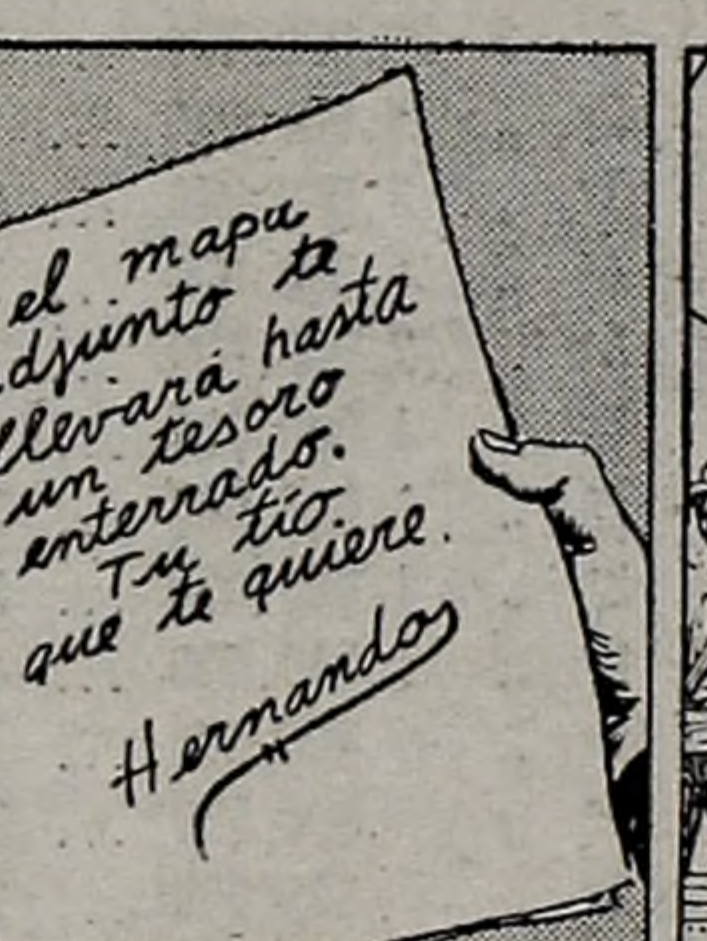 el mapa
adjunto te
llevará hasta
un tesoro
enterrado.
Tu tío
que te quiere.
Hernando